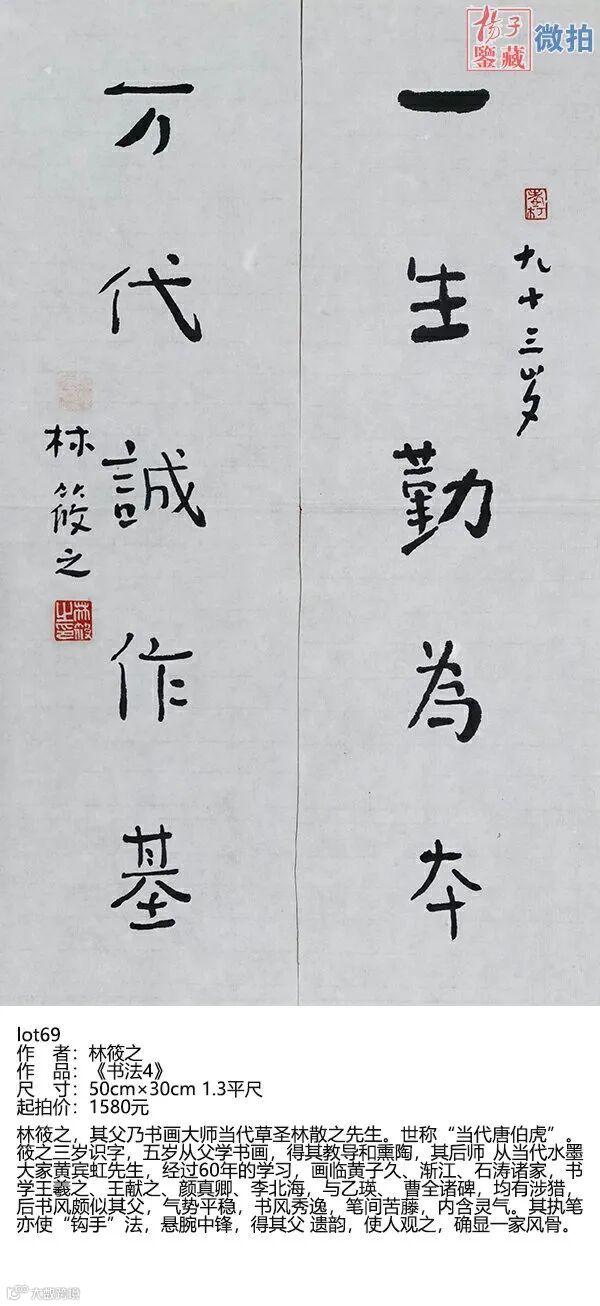 杨子
鉴藏
微拍
九十三岁
一生勤为本
万代誠作基
林筱之
林筱之印
lot69
作 者：林筱之
作 品：《书法4》
尺 寸：50cm×30cm 1.3平尺
起拍价：1580元
林筱之，其父乃书画大师当代草圣林散之先生。世称“当代唐伯虎”。
筱之三岁识字，五岁从父学书画，得其教导和熏陶，其后师 从当代水墨
大家黄宾虹先生，经过60年的学习，画临黄子久、渐江、石涛诸家，书
学王羲之、王献之、颜真卿、李北海，与乙瑛、 曹全诸碑，均有涉猎，
后书风颇似其父，气势平稳，书风秀逸，笔间苦藤，内含灵气。其执笔
亦使“钩手”法，悬腕中锋，得其父 遗韵，使人观之，确显一家风骨。